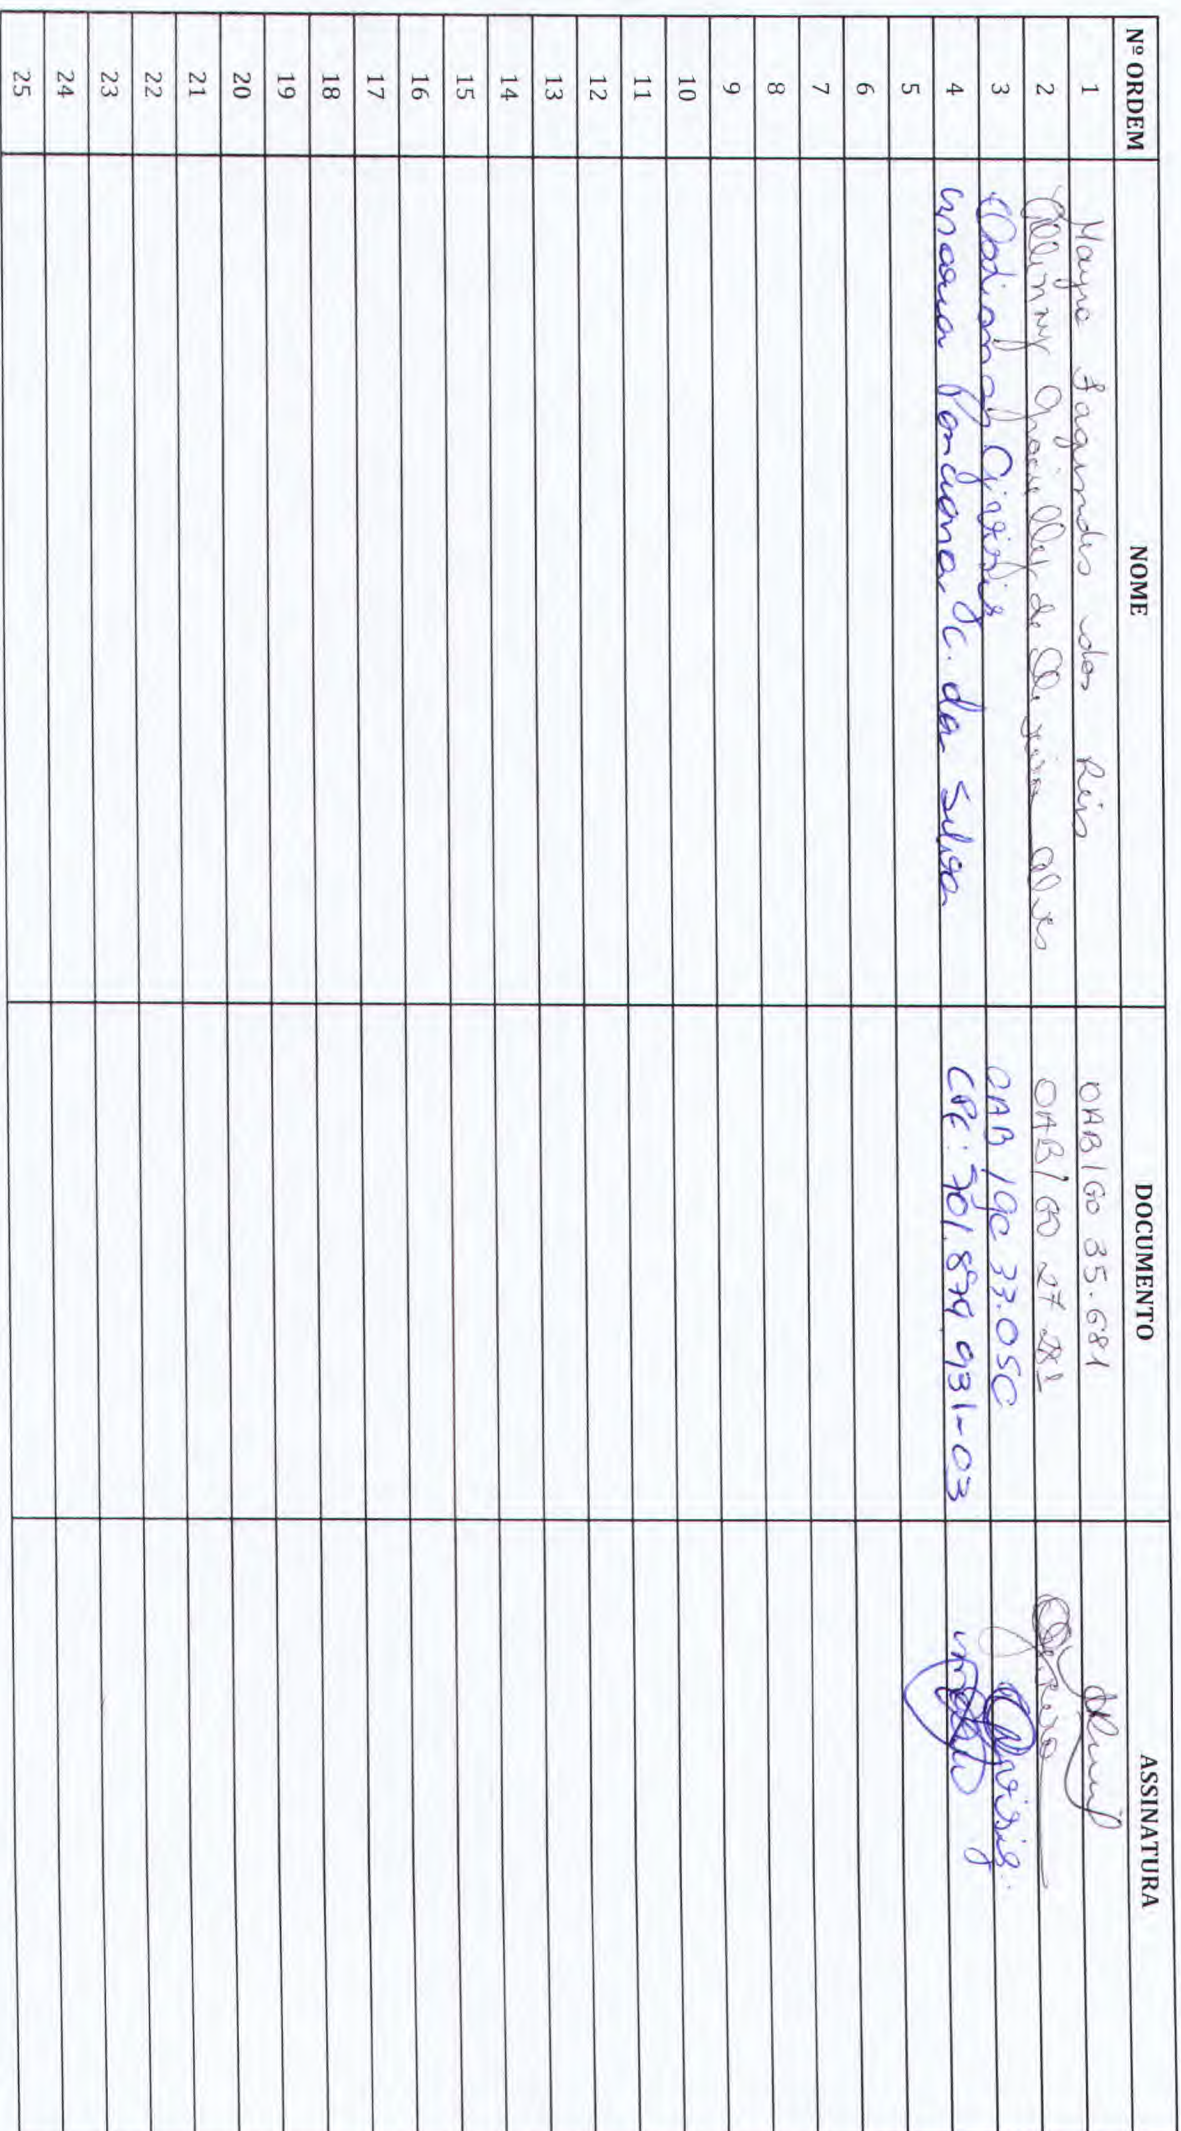 Nº ORDEM NOME DOCUMENTO ASSINATURA
1 Mayra Fagundes dos Reis OAB/GO 35.681
2 de Oliveira Alves OAB/GO 27 281
3 OAB/go 33.050
4 Maria da Silva CPF: 701.879.931-03
5
6
7
8
9
10
11
12
13
14
15
16
17
18
19
20
21
22
23
24
25